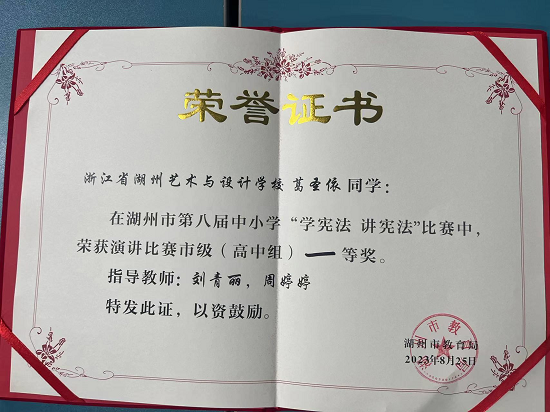 荣誉证书
浙江省湖州艺术与设计学校 葛圣依 同学：
在湖州市第八届中小学 “学宪法 讲宪法”比赛中，
荣获演讲比赛市级（高中组）一等奖。
指导教师：刘青丽，周婷婷
特发此证，以资鼓励。
湖州市教育局
2023年8月25日